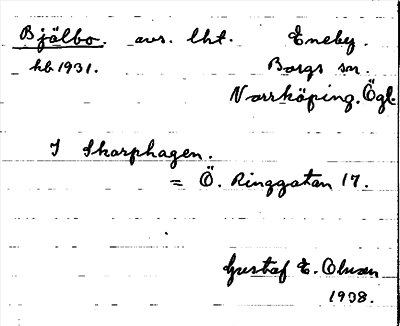 Bjälbo. avs. lht. Eneby.
hb 1931. Borgs sn.
Norrköping. Ögl.
I Skarphagen.
= Ö. Ringgatan 17.
Gustaf E. Olsson
1938.